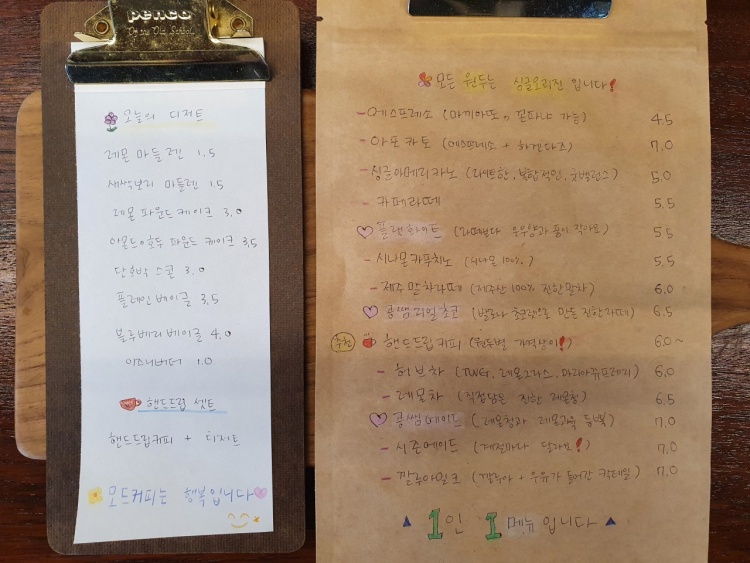 penco
On the Old School
오늘의 디저트
레몬 마들렌 1.5
새싹보리 마들렌 1.5
레몬 파운드 케이크 3.0
아몬드&호두 파운드 케이크 3.5
단호박 스콘 3.0
플레인 베이글 3.5
블루베리 베이글 4.0
이즈니버터 1.0
핸드드립 셋트
핸드드립커피 + 디저트
모드커피는 행복입니다
모든 원두는 싱글오리진 입니다!
- 에스프레소 (마끼아또, 꼰파냐 가능) 4.5
- 아포카토 (에스프레소 + 하겐다즈) 7.0
- 싱글아메리카노 (라이트한, 복합적인, 초밸런스) 5.0
- 카페라떼 5.5
플랫화이트 (라떼보다 우유양과 폼이 작아요) 5.5
- 시나몬카푸치노 (시나몬 100%) 5.5
- 제주말차라떼 (제주산 100% 진한말차) 6.0
콩쌤리얼초코 (발로나 초콜릿으로 만든 진한라떼) 6.5
추천 핸드드립커피 (원두별 가격상이!) 6.0~
- 허브차 (TWG, 레몬그라스, 마리아쥬프레르) 6.0
- 레몬차 (직접담근 진한 레몬청) 6.5
콩쌤에이드 (레몬청과 레몬과육 듬뿍) 7.0
- 시즌에이드 (계절마다 달라요!) 7.0
- 깔루아밀크 (깔루아 + 우유가 들어간 칵테일) 7.0
1인 1메뉴입니다